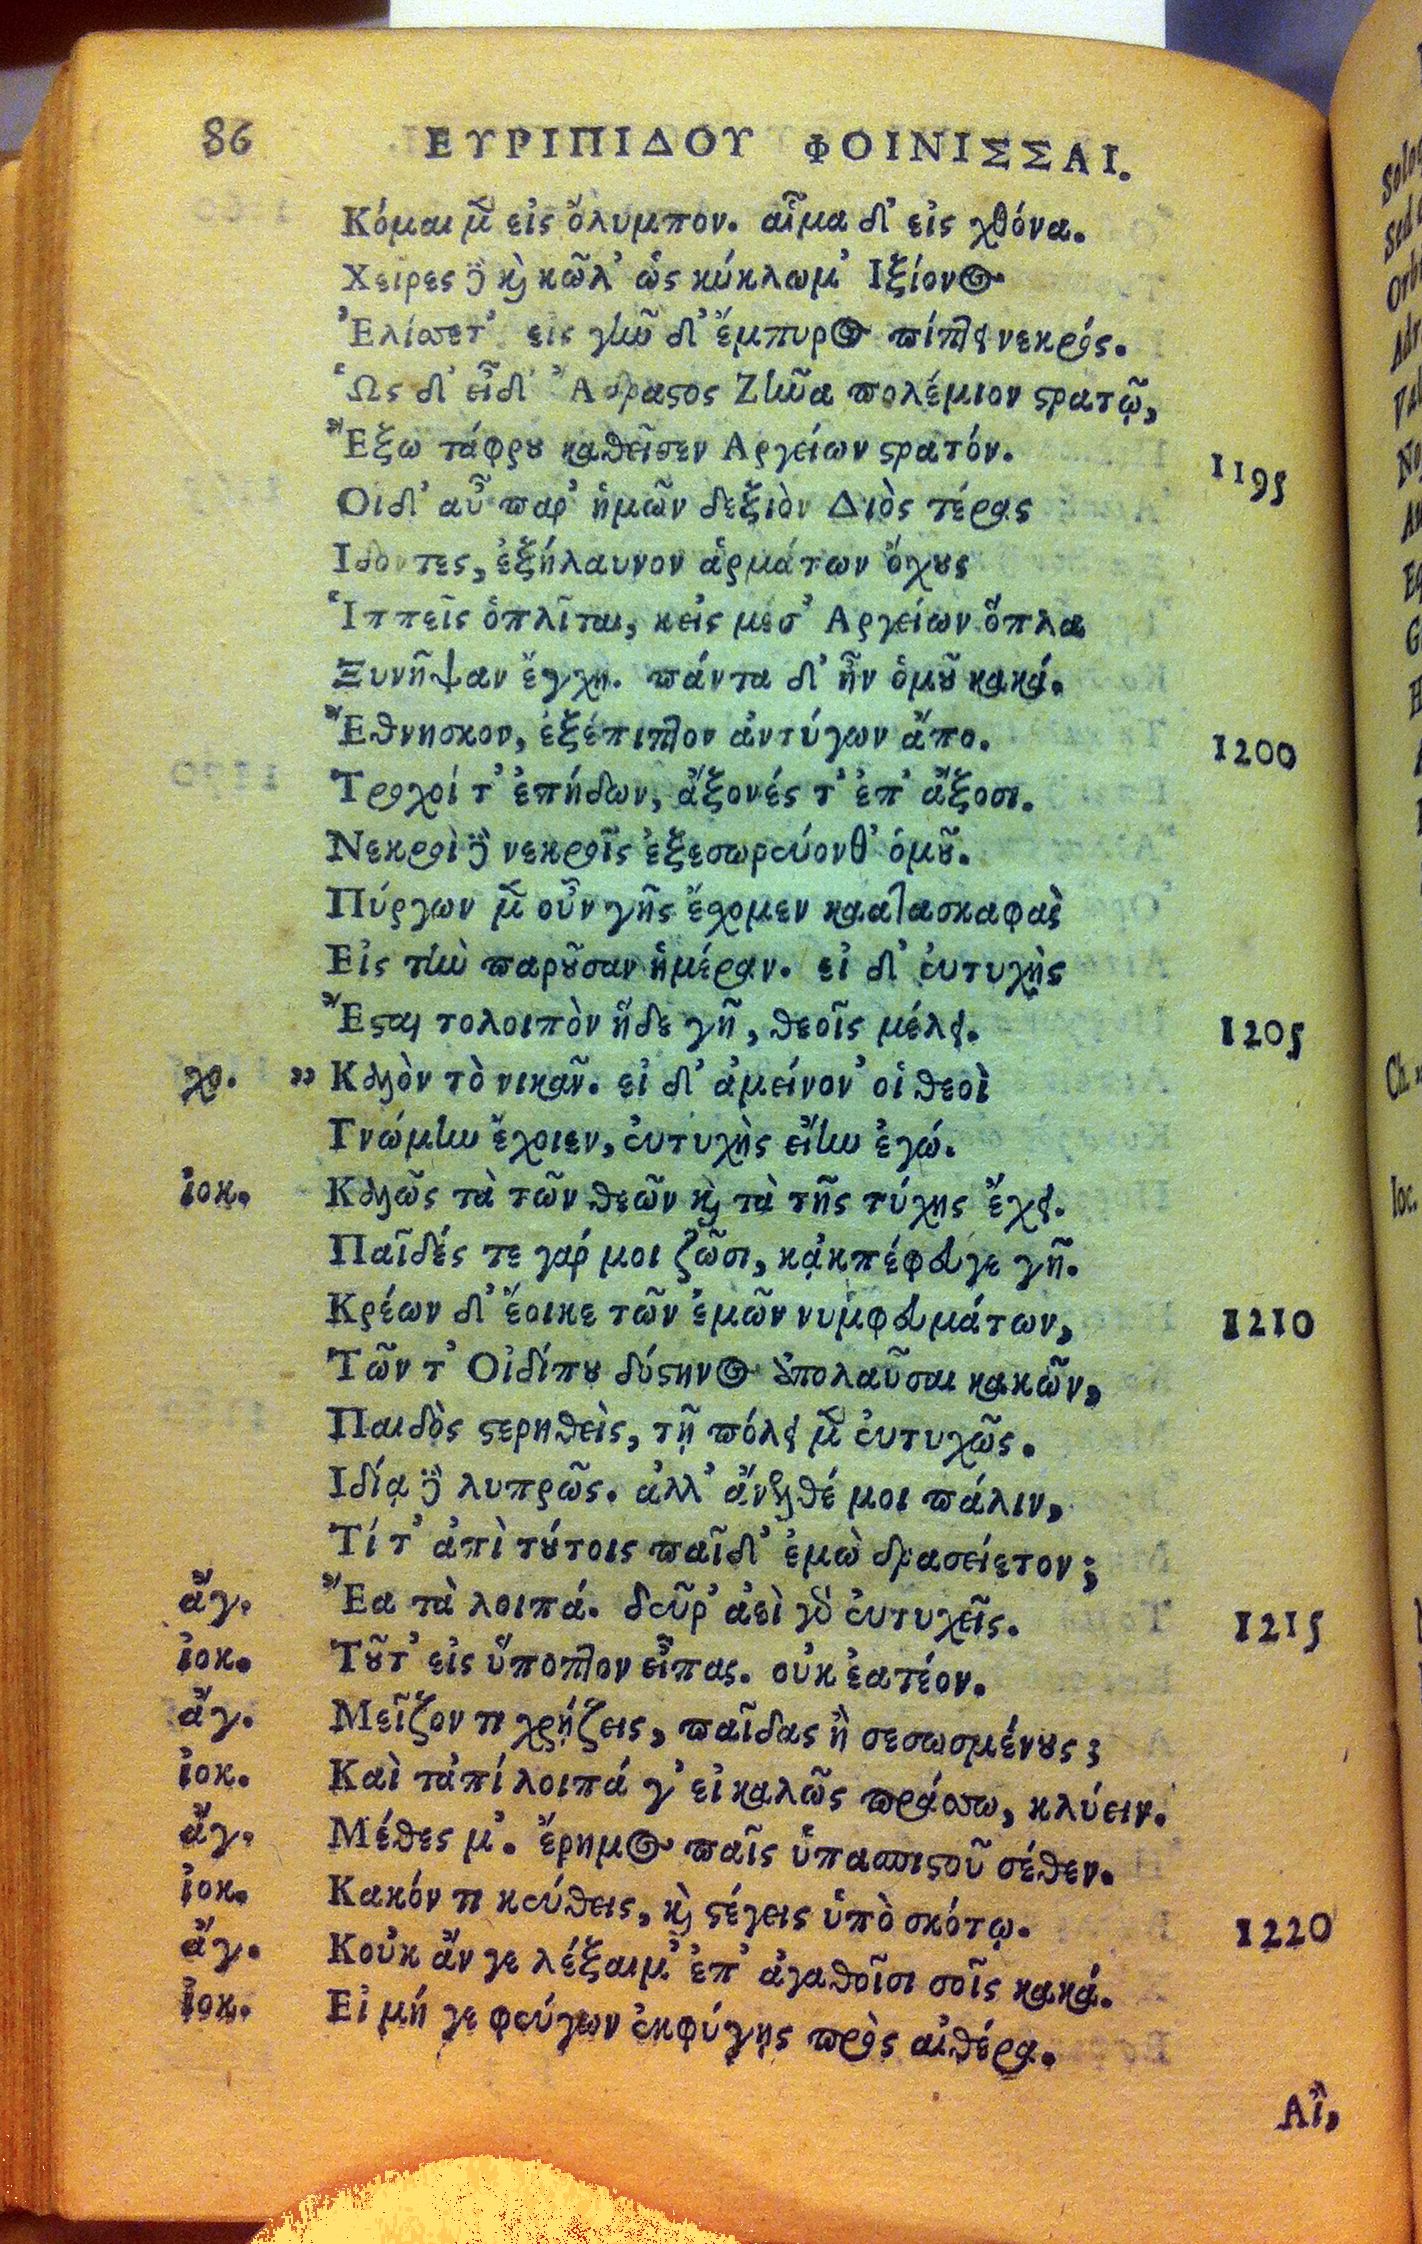 86 ΕΥΡΙΠΙΔΟΥ ΦΟΙΝΙΣΣΑΙ.
Κόμαι μ̃ εἰς ὄλυμπον. αἷμα δ' εἰς χθόνα.
Χεῖρες ὃ ϗ κῶλ' ὡς κύκλωμ' Ιξίονος
Ἑλίσσετ' εἰς γῆν δ' ἔμπυρος πίπτει νεκρός.
Ὡς δ' εἶδ' Ἄδραϛος Ζῆνα πολέμιον ϛρατῷ,
Ἔξω τάφρȣ καθεῖσεν Αργείων ϛρατόν. 1195
Οἱ δ' αὖ παρ' ἡμῶν δεξιὸν Διὸς τέρας
Ιδόντες, ἐξήλαυνον ἁρμάτων ὄχȣς
Ἱππεῖς ὁπλῖται, κεἰς μέσ' Αργείων ὅπλα
Ξυνῆψαν ἔγχη. πάντα δ' ἦν ὁμȣ κακά.
Ἔθνησκον, ἐξέπιπτον ἀντύγων ἄπο. 1200
Τροχοί τ' ἐπήδων, ἄξονές τ' ἐπ' ἄξοσι.
Νεκροὶ ὃ νεκροῖς ἐξεσωρεύονθ' ὁμȣ͂.
Πύργων μ̃ οὖν γῆς ἔχομεν καατασκαφαὶ
Εἰς τὴν παρȣ͂σαν ἡμέραν. εἰ δ' εὐτυχὴς
Ἔϛαι τολοιπὸν ἥδε γῆ, θεοῖς μέλει. 1205
χο. ,, Καλὸν τὸ νικᾶν. εἰ δ' ἀμείνον' οἱ θεοὶ
Γνώμην ἔχοιεν, εὐτυχὴς εἴην ἐγώ.
ἰοκ. Καλῶς τὰ τῶν θεῶν ϗ τὰ τῆς τύχης ἔχει.
Παῖδές τε γάρ μοι ζῶσι, κᾀκπέφευγε γῆ.
Κρέων δ' ἔοικε τῶν ἐμῶν νυμφευμάτων, 1210
Τῶν τ' Οἰδίπȣ δύϛηνος ἀπολαῦσαι κακῶν,
Παιδὸς ϛερηθεὶς, τῇ πόλει μ̃ εὐτυχῶς.
Ιδίᾳ ὃ λυπρῶς. ἀλλ' ἄνελθέ μοι πάλιν,
Τί τ' ἀπὶ τȣ́τοις παῖδ' ἐμὼ δρασείετον;
ἄγ. Ἔα τὰ λοιπά. δεῦρ' ἀεὶ γδ̀ εὐτυχεῖς. 1215
ἰοκ. Τȣ͂τ' εἰς ὕποπτον εἶπας. οὐκ ἐατέον.
ἄγ. Μεῖζον τι χρῄζεις, παῖδας ἢ σεσωσμένȣς;
ἰοκ. Καὶ τἀπίλοιπά γ' εἰ καλῶς πράσσω, κλύειν.
ἄγ. Μέθες μ'. ἔρημος παῖς ὑπασπιϛοῦ σέθεν.
ἰοκ. Κακόν τι κεύθεις, ϗ ϛέγεις ὑπὸ σκότῳ. 1220
ἄγ. Κοὐκ ἄν γε λέξαιμ' ἐπ' ἀγαθοῖσι σοῖς κακά.
ἰοκ. Εἰ μή γε φεύγων ἐκφύγῃς πρὸς αἰθέρα.
Αἲ,
Ch.
Ioc.